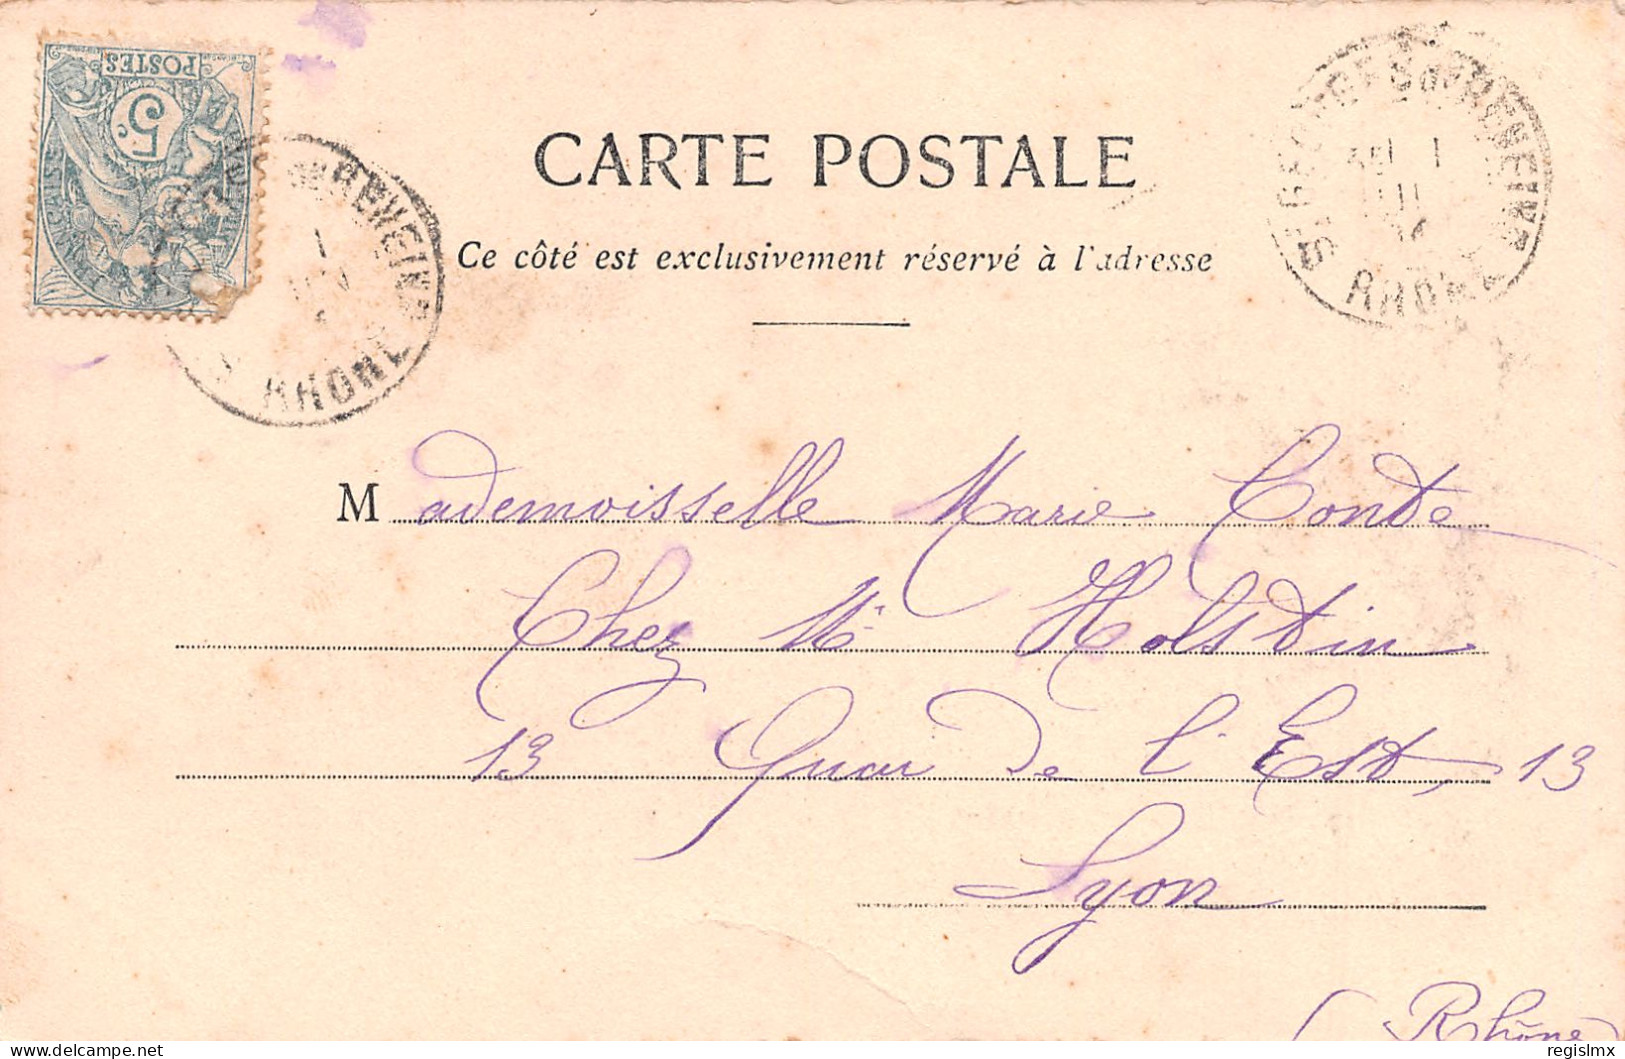 POSTES
5c
CARTE POSTALE
Ce côté est exclusivement réservé à l'adresse
RHONE
RHONE
Mademoisselle Marie Conde
Chez Mr Holstin
13 Quai de l'Est, 13
Lyon
(Rhône
regislmx